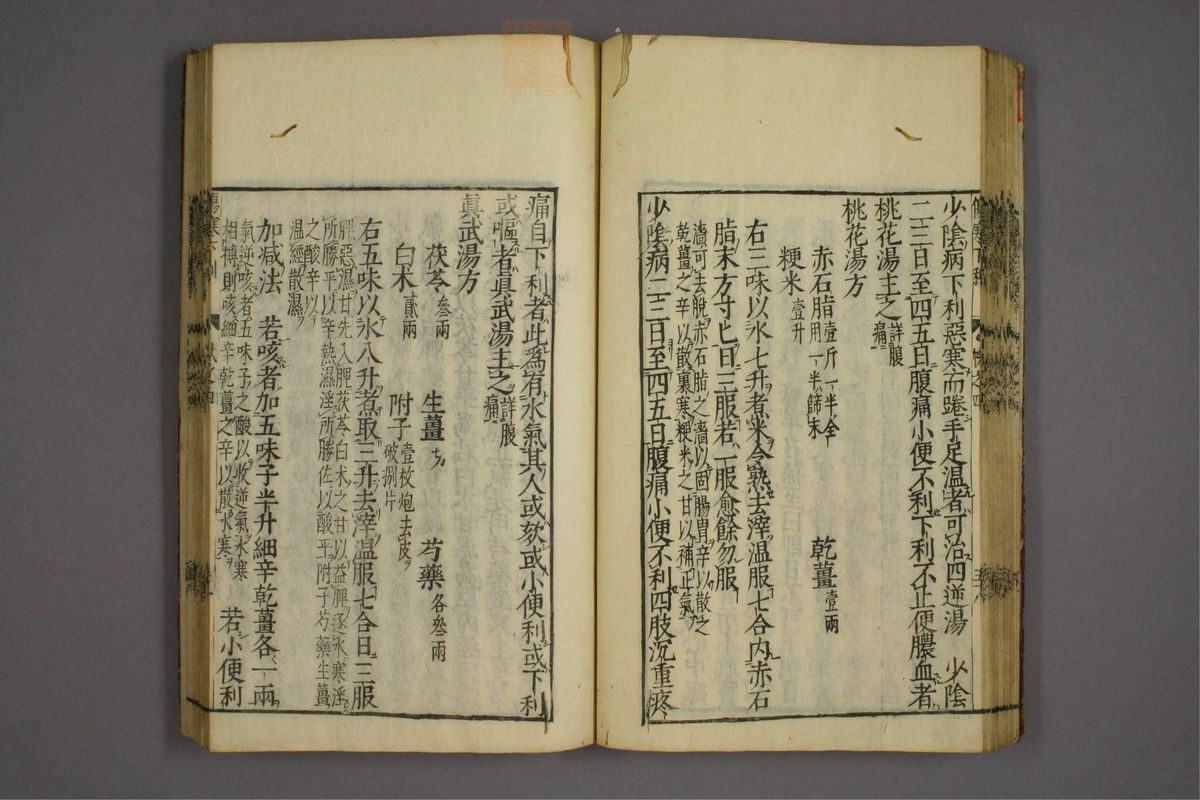 少陰病下利惡寒而踡手足溫者可治四逆湯　少陰
二三日至四五日腹痛小便不利下利不止便膿血者
桃花湯主之詳腹痛
桃花湯方
赤石脂壹斤一半全用一半篩末　乾薑壹兩
粳米壹升
右三味以水七升煮米令熟去滓溫服七合內赤石
脂末方寸匕日三服若一服愈餘勿服
濇可去脫赤石脂之濇以固腸胃辛以散之
乾薑之辛以散裏寒粳米之甘以補正氣
少陰病二三日至四五日腹痛小便不利四肢沉重疼
痛自下利者此為有水氣其人或欬或小便利或下利
或嘔者眞武湯主之詳腹痛
眞武湯方
茯苓叁兩　生薑　芍藥各叁兩
白朮貳兩　附子壹枚炮去皮破捌片
右五味以水八升煮取三升去滓溫服七合日三服
脾惡濕甘先入脾茯苓白朮之甘以益脾逐水寒淫
所勝平以辛熱濕淫所勝佐以酸平附子芍藥生薑
之酸辛以
溫經散濕
加減法　若咳者加五味子半升細辛乾薑各一兩
氣逆咳者五味子之酸以收逆氣水寒
相搏則咳細辛乾薑之辛以散水寒　若小便利